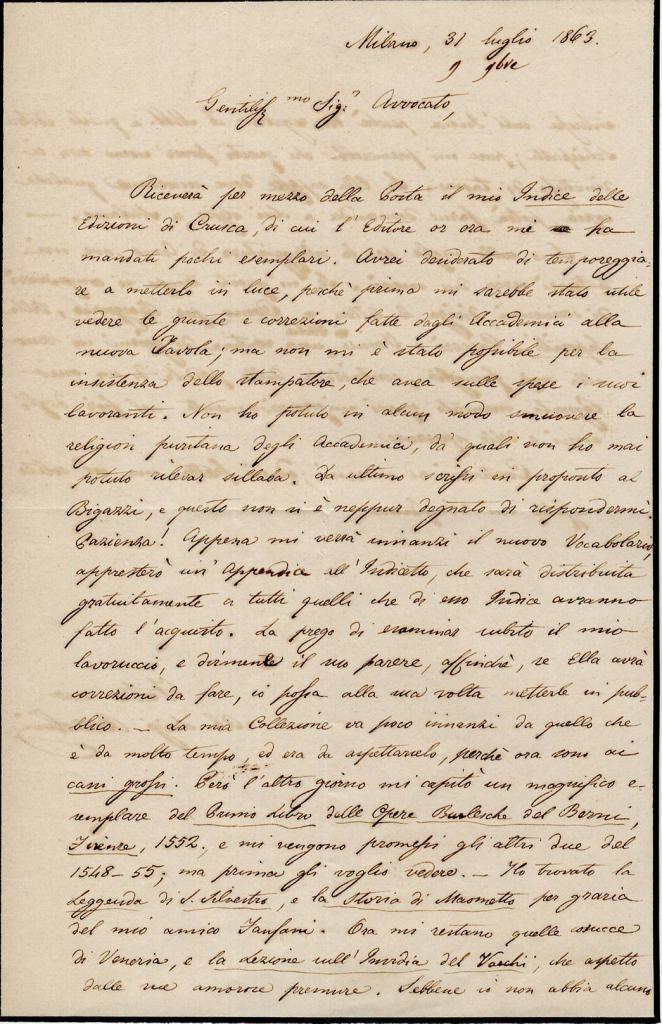 Milano, 31 luglio 1863.
9 9bre
Gentiliss.mo Sig.r Avvocato,
Riceverà per mezzo della Posta il mio Indice delle
Edizioni di Crusca, di cui l'Editore or ora mi ha
mandati pochi esemplari. Avrei desiderato di temporeggia-
re a metterlo in luce, perchè prima mi sarebbe stato utile
vedere le giunte e correzioni fatte dagli Accademici alla
nuova Tavola; ma non mi è stato possibile per la
insistenza dello stampatore, che avea sulle spese i suoi
lavoranti. Non ho potuto in alcun modo smuovere la
religion puritana degli Accademici, da quali non ho mai
potuto rilevar sillaba. Da ultimo scrissi in proposito al
Bigazzi, e questo non si è neppur degnato di rispondermi.
Pazienza! Appena mi verrà innanzi il nuovo Vocabolario,
appresterò un' Appendice all'Indicetto, che sarà distribuita
gratuitamente a tutti quelli che di esso Indice avranno
fatto l'acquisto. La prego di esaminar subito il mio
lavoruccio, e dirmene il suo parere, affinchè, se Ella avrà
correzioni da fare, io possa alla sua volta metterle in pub-
blico. – La mia Collezione va poco innanzi da quello che
è da molto tempo, ed era da aspettarselo, perchè ora sono ai
cani grossi. Però l'altro giorno mi capitò un magnifico e-
semplare del Primo Libro delle Opere Burlesche del Berni,
Firenze, 1552. e mi vengono promessi gli altri due del
1548-55; ma prima gli voglio vedere. – Ho trovato la
Leggenda di S. Silvestro, e la Storia di Maometto per grazia
del mio amico Fanfani. Ora mi restano quelle
di Venezia, e la Lezione sull'Invidia del Varchi, che aspetto
dalle sue amorose premure. Sebbene io non abbia alcuna